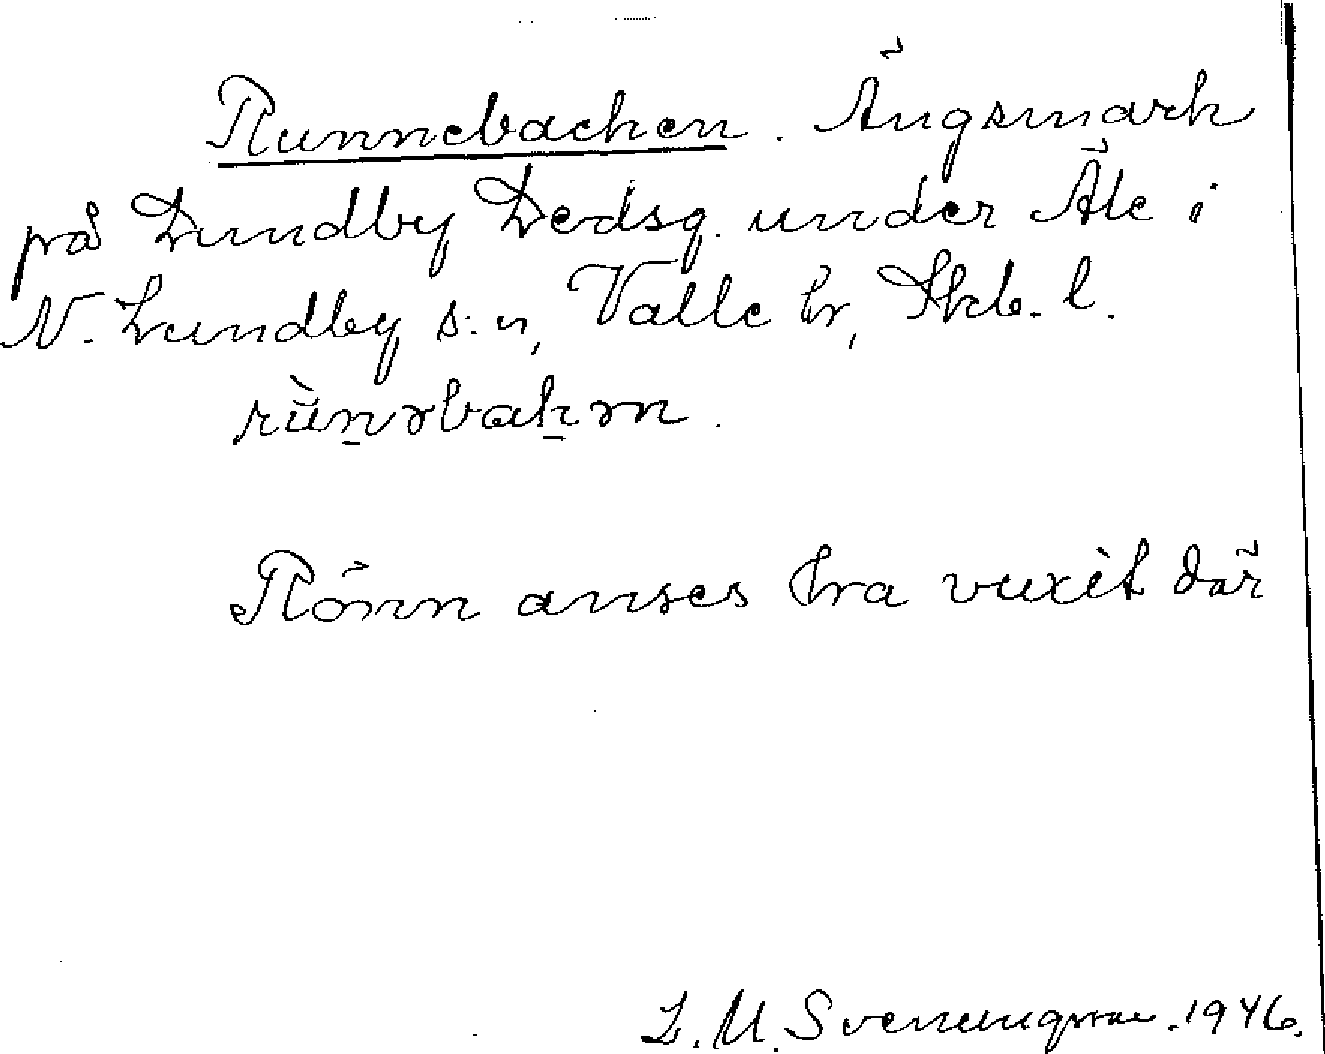 Runnebacken. Ängsmark
på Lundby Ledsg. under Äle i
N. Lundby s:n, Valle hr, Skb. l.
rùn̠əbak̠ən.
Rönn anses ha vuxit där
L. M. Svenungsson. 1946.